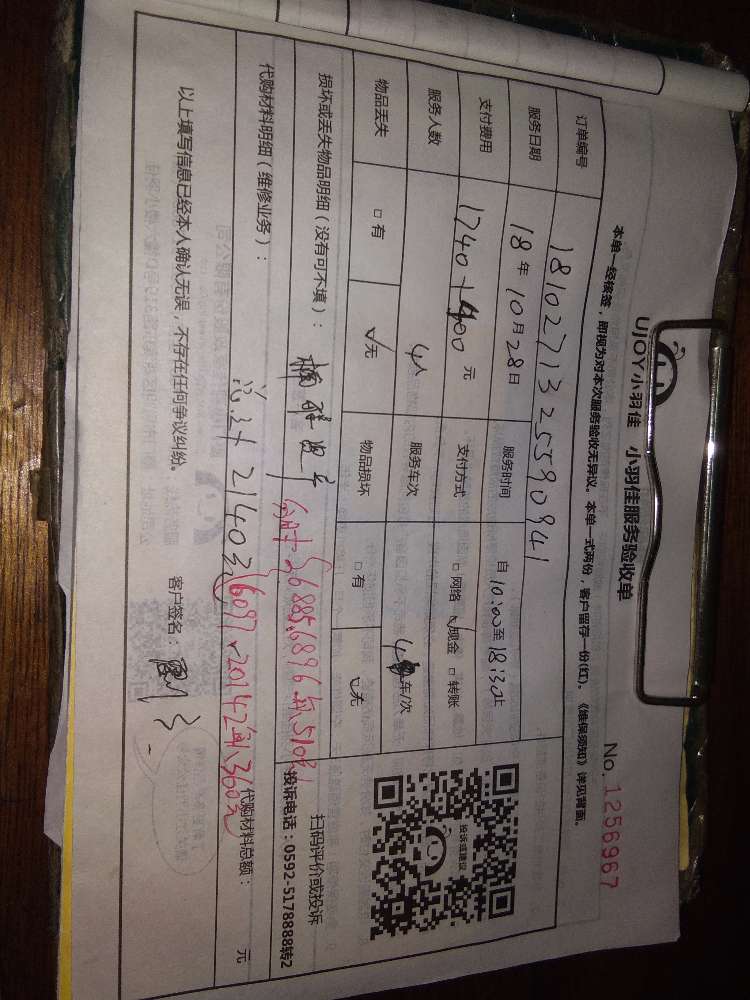 UJOY小羽佳 小羽佳服务验收单
No.1256967
本单一经核签，即视为对本次服务验收无异议。本单一式两份，客户留存一份(红)。《维保须知》详见背面。
订单编号 1810271325590941
服务日期 18年10月28日 服务时间 自10:00至18:30止
支付费用 1740+400元 支付方式 □网络 ☑现金 □转账
服务人数 4人 服务车次 4车/次
物品丢失 □有 ☑无 物品损坏 □有 ☑无
投诉或建议
扫码评价或投诉
投诉电话：0592-5178888转2
损坏或丢失物品明细（没有可不填）：
代购材料明细（维修业务）：
总计2140元
代购材料总额： 元
以上填写信息已经本人确认无误，不存在任何争议纠纷。 客户签名：